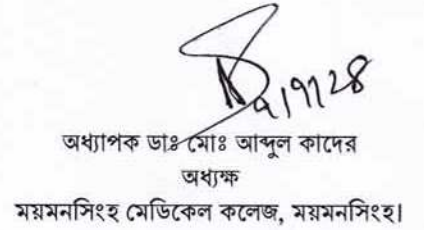 অধ্যাপক ডাঃ মোঃ আব্দুল কাদের
অধ্যক্ষ
ময়মনসিংহ মেডিকেল কলেজ, ময়মনসিংহ।